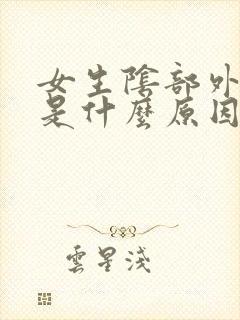 女生陰部外
是什麼原因
雲星淺